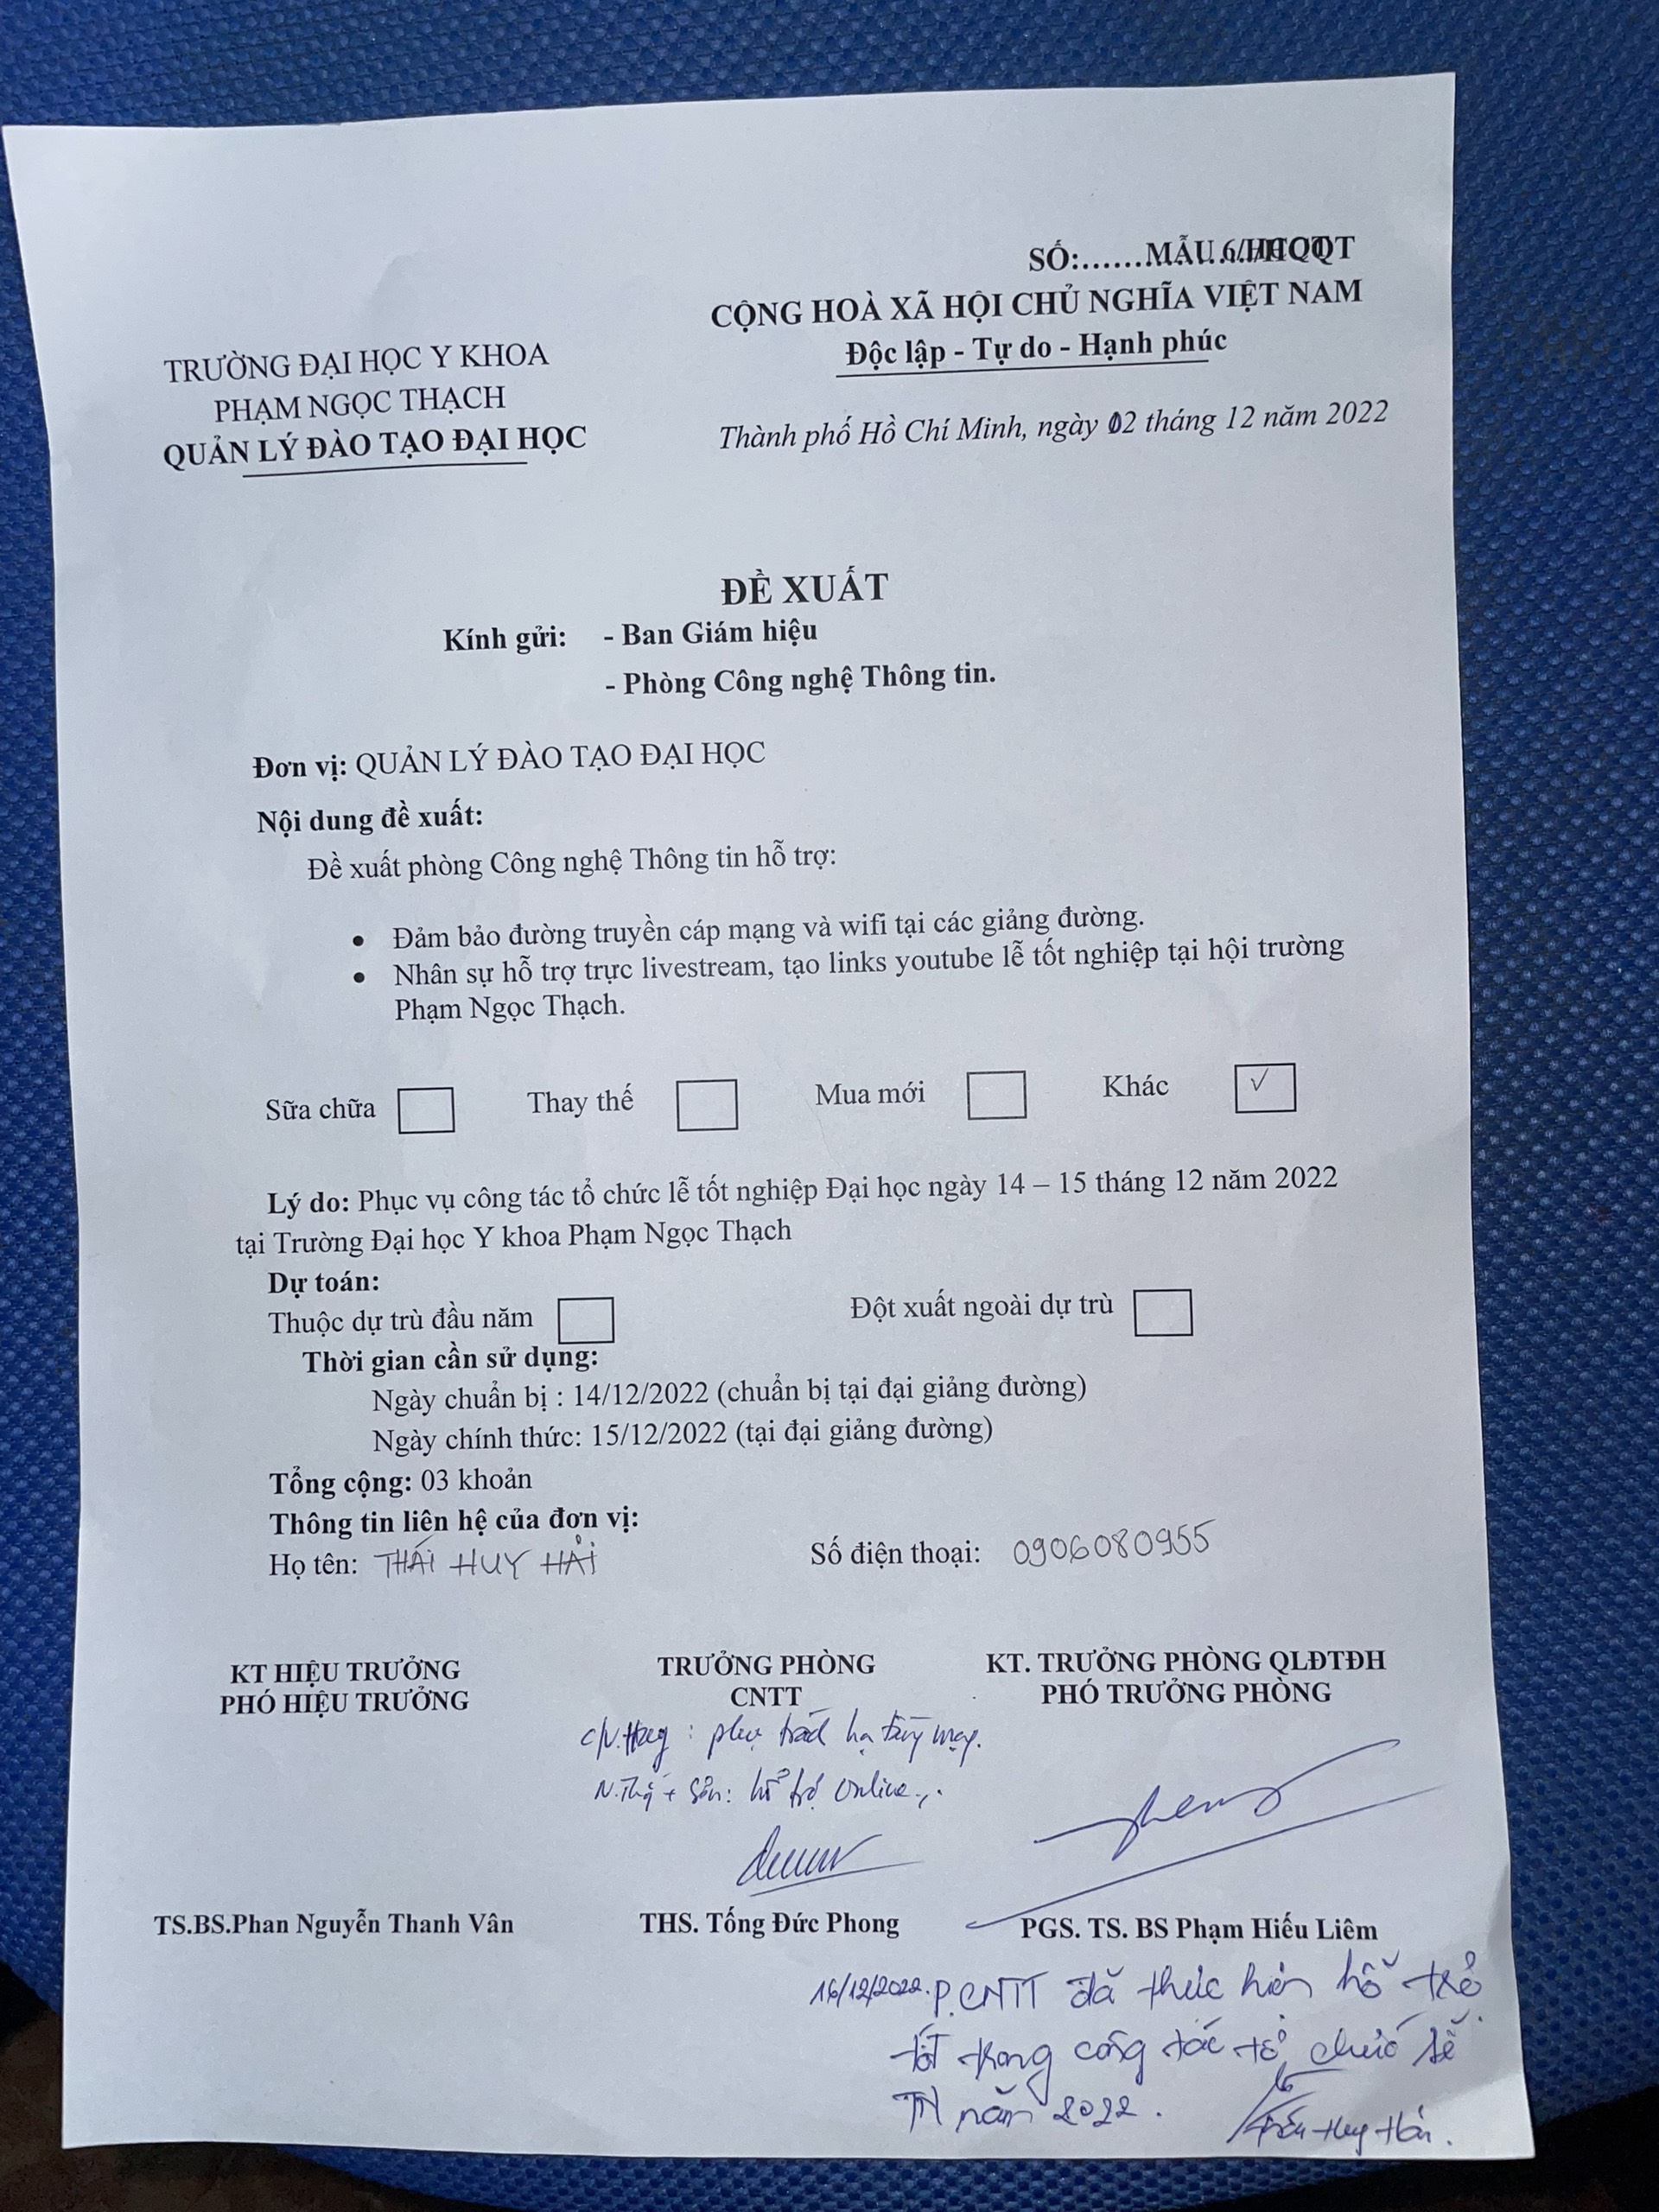 SỐ:......MẪU 6/HTQT
CỘNG HOÀ XÃ HỘI CHỦ NGHĨA VIỆT NAM
Độc lập - Tự do - Hạnh phúc
TRƯỜNG ĐẠI HỌC Y KHOA
PHẠM NGỌC THẠCH
QUẢN LÝ ĐÀO TẠO ĐẠI HỌC
Thành phố Hồ Chí Minh, ngày 02 tháng 12 năm 2022
ĐỀ XUẤT
Kính gửi: - Ban Giám hiệu
- Phòng Công nghệ Thông tin.
Đơn vị: QUẢN LÝ ĐÀO TẠO ĐẠI HỌC
Nội dung đề xuất:
Đề xuất phòng Công nghệ Thông tin hỗ trợ:
• Đảm bảo đường truyền cáp mạng và wifi tại các giảng đường.
• Nhân sự hỗ trợ trực livestream, tạo links youtube lễ tốt nghiệp tại hội trường
Phạm Ngọc Thạch.
Sữa chữa Thay thế Mua mới Khác ✓
Lý do: Phục vụ công tác tổ chức lễ tốt nghiệp Đại học ngày 14 – 15 tháng 12 năm 2022
tại Trường Đại học Y khoa Phạm Ngọc Thạch
Dự toán:
Thuộc dự trù đầu năm Đột xuất ngoài dự trù
Thời gian cần sử dụng:
Ngày chuẩn bị : 14/12/2022 (chuẩn bị tại đại giảng đường)
Ngày chính thức: 15/12/2022 (tại đại giảng đường)
Tổng cộng: 03 khoản
Thông tin liên hệ của đơn vị:
Họ tên: THÁI HUY HẢI Số điện thoại: 0906080955
KT HIỆU TRƯỞNG TRƯỞNG PHÒNG KT. TRƯỞNG PHÒNG QLĐTĐH
PHÓ HIỆU TRƯỞNG CNTT PHÓ TRƯỞNG PHÒNG
: phụ trách hạ tầng mạng.
hỗ trợ Online
TS.BS.Phan Nguyễn Thanh Vân THS. Tống Đức Phong PGS. TS. BS Phạm Hiếu Liêm
16/12/2022. P.CNTT đã thực hiện hỗ trợ
tốt trong công tác tổ chức lễ
TN năm 2022.